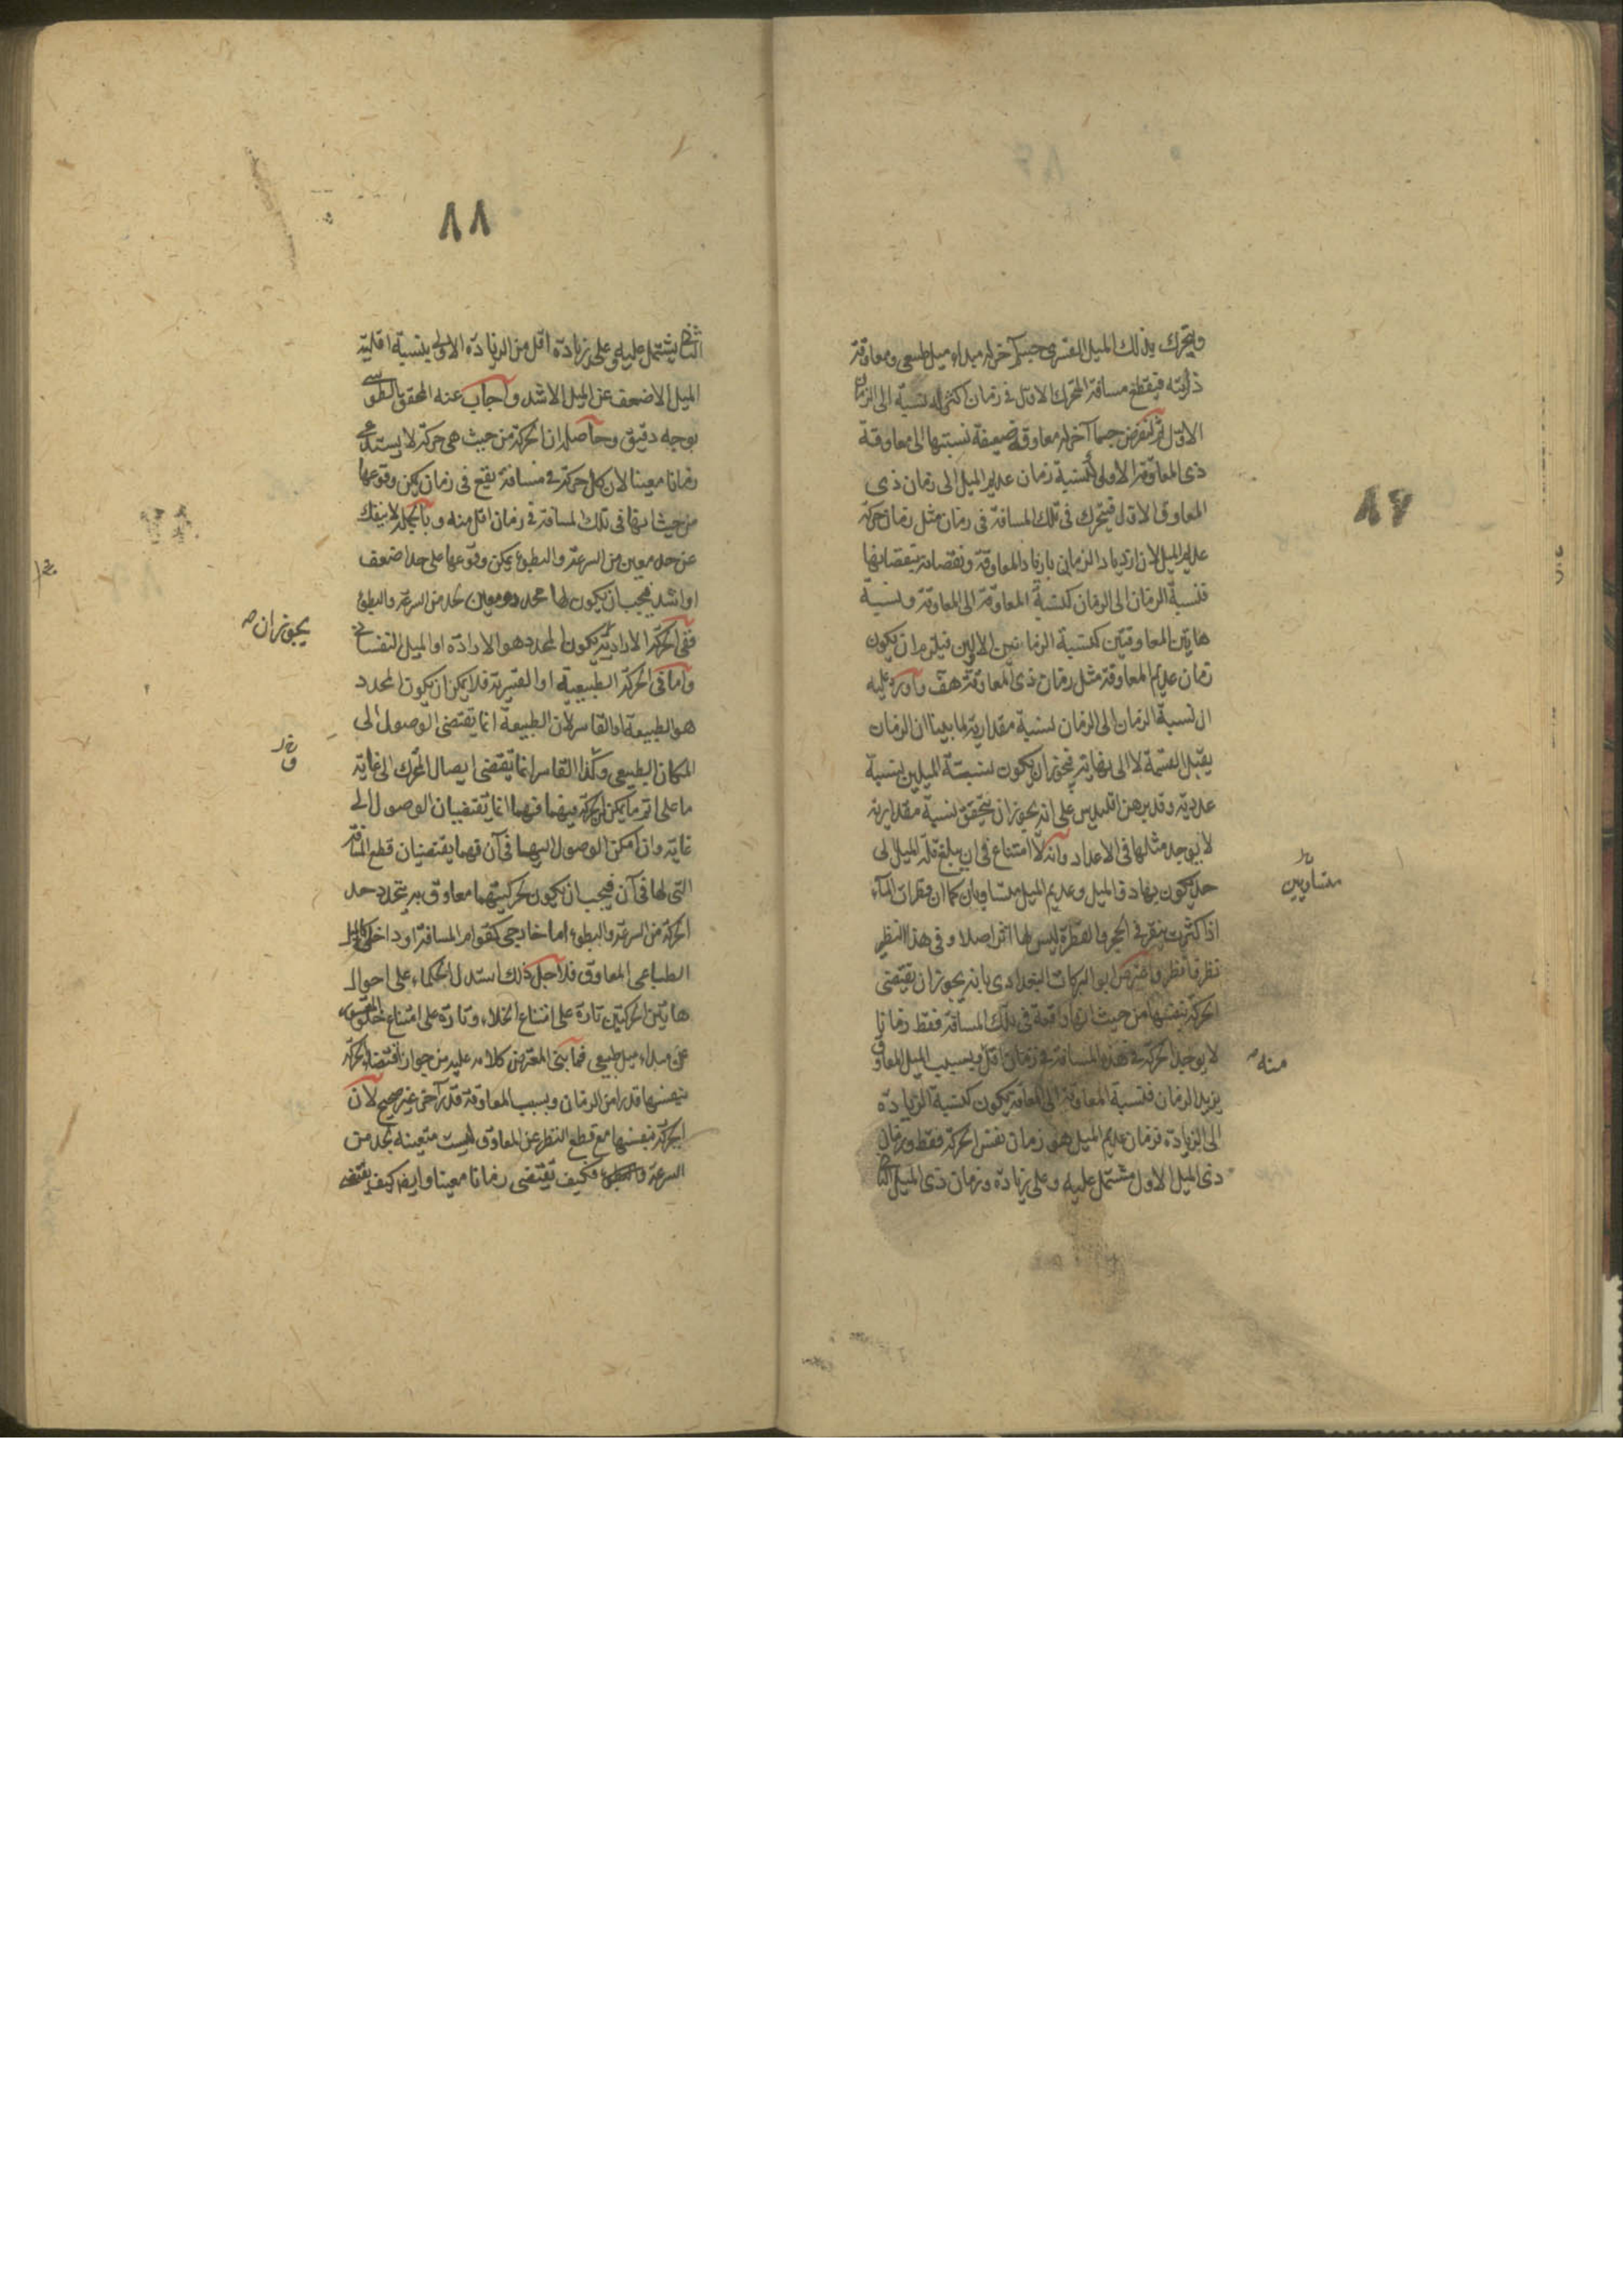 ٨٧
ويتحرك بذلك الميل القسري جسم آخر له مبداء ميل طبيعي ومعاوقة
ذاتية فيقطع مسافة المتحرك الاول في زمان اكثر له نسبة الى الزمان
الاول ثم لنفرض جسما آخر له معاوقة ضعيفة نسبتها الى معاوقة
ذي المعاوقة الأولى كنسبة زمان عديم الميل الى زمان ذي
المعاوق الاول فيتحرك في تلك المسافة في زمان مثل زمان حركة
عديم الميل لان ازدياد الزماني بازياد المعاوقة ونقصانه بنقصانها
فنسبة الزمان الى الزمان كنسبة المعاوقة الى المعاوقة ونسبة
هاتين المعاوقتين كنسبة الزمانين الاولين فيلزم ان يكون
زمان عديم المعاوقة مثل زمان ذي المعاوقة هف واورد عليه
ان نسبة الزمان الى الزمان نسبة مقدارية لما بينا ان الزمان
يقبل القسمة لا الى نهاية فيجوز ان يكون نسبة الميلين بنسبة
عددية وقد برهن اقليدس على انه يجوز ان يتحقق نسبة مقدارية
لا يوجد مثلها في الاعداد وانه لا امتناع في ان يبلغ قلة الميل الى
حد يكون بها ذو الميل وعديم الميل متساويان كما ان قطرات الماء
متساويين
اذا كثرت ينقر في الحجر والقطرة ليس لها اثر اصلا وفي هذا النظر
نظر فانظر واعترض ابو البركات البغدادي بانه يجوز ان يقتضي
الحركة بنفسها من حيث انها واقعة في تلك المسافة فقط زمانا
لا يوجد الحركة في هذه المسافة في زمان اقل وبسبب الميل المعاوق
منه
يزيد الزمان فنسبة المعاوقة الى المعاوقة يكون كنسبة الزيادة
الى الزيادة فزمان عديم الميل هو زمان نفس الحركة فقط وزمان
ذي الميل الاول مشتمل عليه وعلى زيادة وزمان ذي الميل الثاني
٨٨
الثاني يشتمل عليه وعلى زيادة اقل من الزيادة الاولى بنسبة اقلية
الميل الاضعف عن الميل الاشد واجاب عنه المحقق الطوسي
بوجه دقيق وحاصله ان الحركة من حيث هي حركة لا يستدعي
زمانا معينا لان كل حركة في مسافة يقع في زمان يمكن وقوعها
من حيث انها في تلك المسافة في زمان اقل منه وبالجملة لا ينفك
عن حد معين من السرعة والبطوء يمكن وقوعها على حد اضعف
او اشد فيجب ان يكون لها محدد ومعين لحد من السرعة والبطوء
ففي الحركة الارادية يكون المحدد هو الارادة او الميل النفساني
يجوز ان
واما في الحركة الطبيعية او القسرية فلا يمكن ان يكون المحدد
هو الطبيعة او القاسر لان الطبيعة انما يقتضي الوصول الى
المكان الطبيعي وكذا القاسر انما يقتضي ايصال المتحرك الى غايته
ما على اتم ما يمكن الحركة فيهما فهما انما يقتضيان الوصول الى
غاية وان امكن الوصول اليهما في آن فهما يقتضيان قطع المسافة
التي لها في آن فيجب ان يكون لحركتيهما معاوق به يتحدد حد
الحركة من السرعة والبطوء اما خارجي كقوام المسافة او داخلي كالميل
الطباعي المعاوق فلاجل ذلك استدل الحكماء على احوال
هاتين الحركتين تارة على امتناع الخلاء وتارة على امتناع خلو القسري
عن مبداء ميل طبيعي فما بنى المعترض كلامه عليه من جواز اقتضاء الحركة
بنفسها قدرا من الزمان وبسبب المعاوقة قدر آخر غير صحيح لان
الحركة بنفسها مع قطع النظر عن المعاوق ليست متعينة بحد من
السرعة والبطوء فكيف تقتضي زمانا معينا وايضا كيف يقتضي